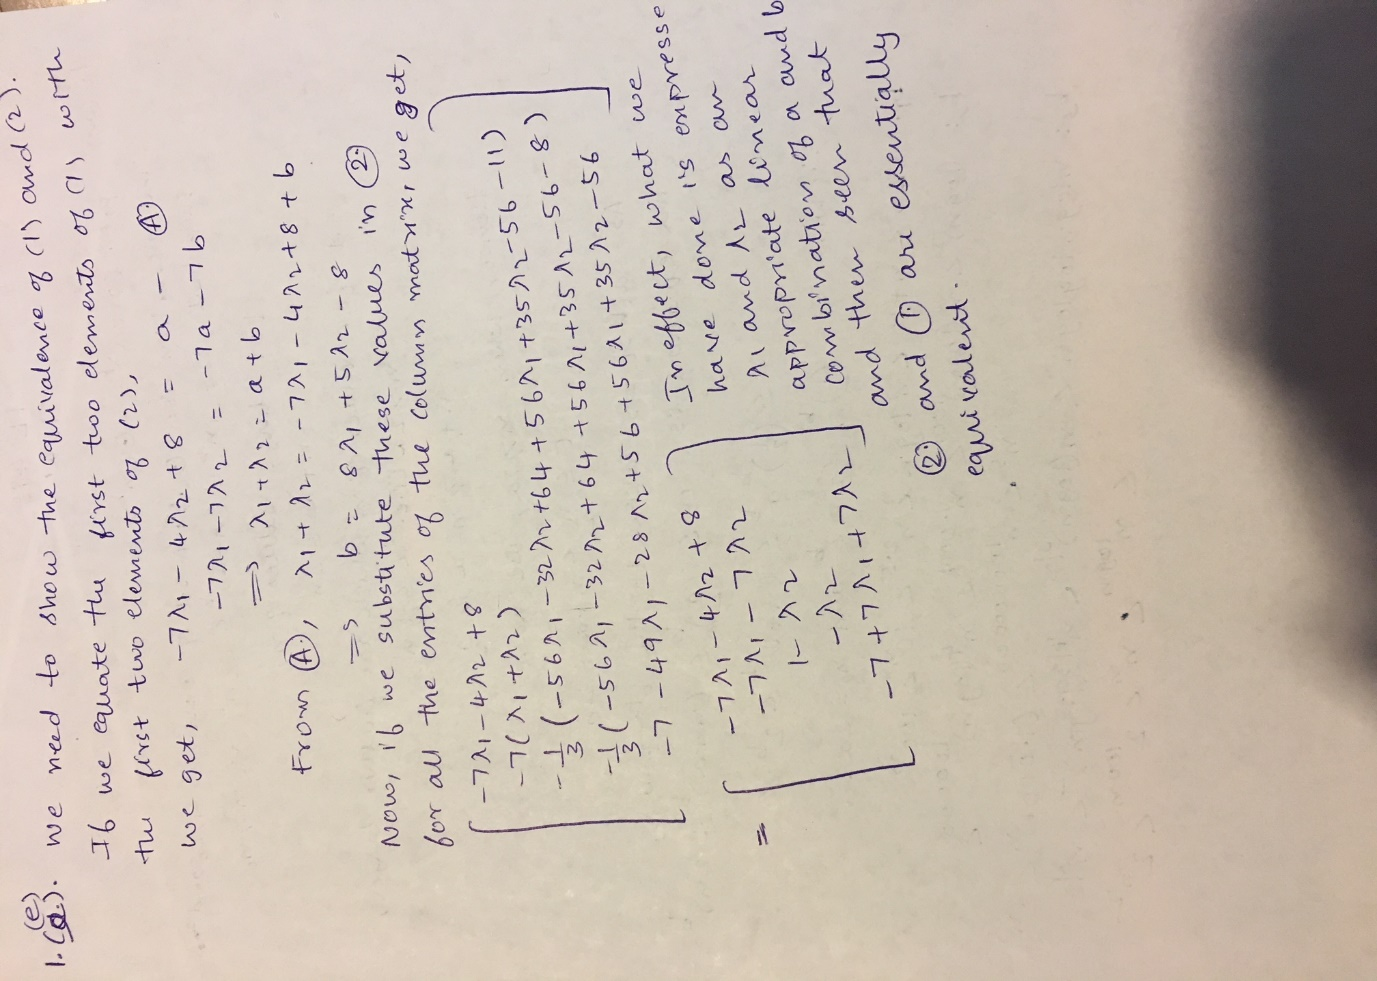 1. (e) (a). we need to show the equivalence of (1) and (2).
If we equate the first two elements of (1) with
the first two elements of (2),
we get, -7λ1 - 4λ2 + 8 = a - (A)
-7λ1 - 7λ2 = -7a - 7b
=> λ1 + λ2 = a + b
From (A), λ1 + λ2 = -7λ1 - 4λ2 + 8 + b
=> b = 8λ1 + 5λ2 - 8
Now, if we substitute these values in (2)
for all the entries of the column matrix, we get,
-7λ1 - 4λ2 + 8
-7(λ1 + λ2)
-1/3 (-56λ1 - 32λ2 + 64 + 56λ1 + 35λ2 - 56 - 11)
-1/3 (-56λ1 - 32λ2 + 64 + 56λ1 + 35λ2 - 56 - 8)
-7 - 49λ1 - 28λ2 + 56 + 56λ1 + 35λ2 - 56
= -7λ1 - 4λ2 + 8
-7λ1 - 7λ2
1 - λ2
-λ2
-7 + 7λ1 + 7λ2
In effect, what we
have done is expresse
λ1 and λ2 as an
appropriate linear
combination of a and b
and then seen that
(2) and (1) are essentially
equivalent.